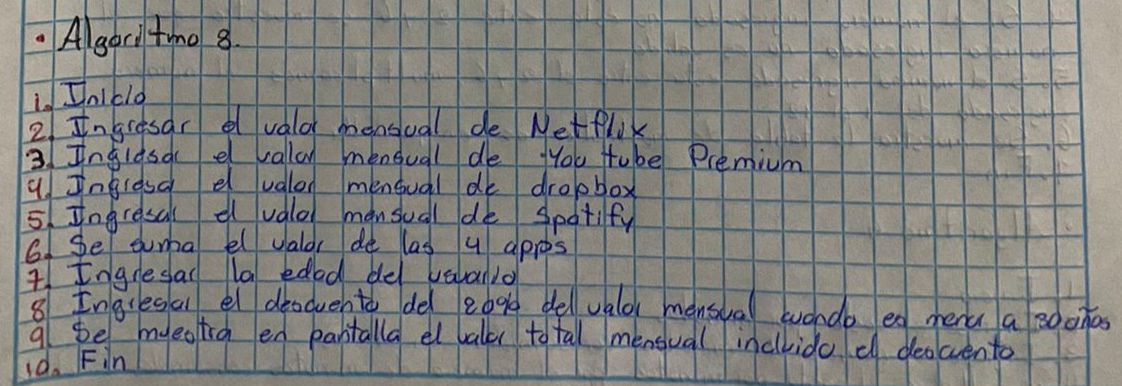 • Algoritmo 8.
1. Inicio
2. Ingresar el valor mensual de Netflix
3. Ingresar el valor mensual de You tube Premium
4. Ingresar el valor mensual de dropbox
5. Ingresar el valor mensual de Spotify
6. Se suma el valor de las 4 apps
7. Ingresar la edad del usuario
8 Ingresar el descuento del 20% del valor mensual cuando es menor a 30 años
9 Se muestra en pantalla el valor total mensual incluido el descuento
10. Fin